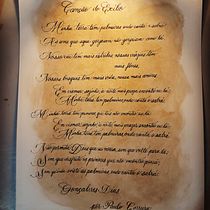 Canção do Exílio
Minha terra tem palmeiras onde canta o sabiá
As aves que aqui gorjeiam não gorjeiam como lá
Nosso céu tem mais estrelas nossas várzeas têm
mais flores
Nossos bosques têm mais vida, nossa vida mais amores
Em cismar, sozinho, à noite mais prazer encontro eu lá
Minha terra tem palmeiras onde canta o sabiá
Minha terra tem primores que tais não encontro eu cá
Em cismar, sozinho, à noite mais prazer encontro eu lá
Minha terra tem palmeiras onde canta o sabiá
Não permita Deus que eu morra, sem que volte para lá
Sem que
Sem qu'inda aviste as palmeiras onde canta o sabiá
Gonçalves Dias
por Pedro